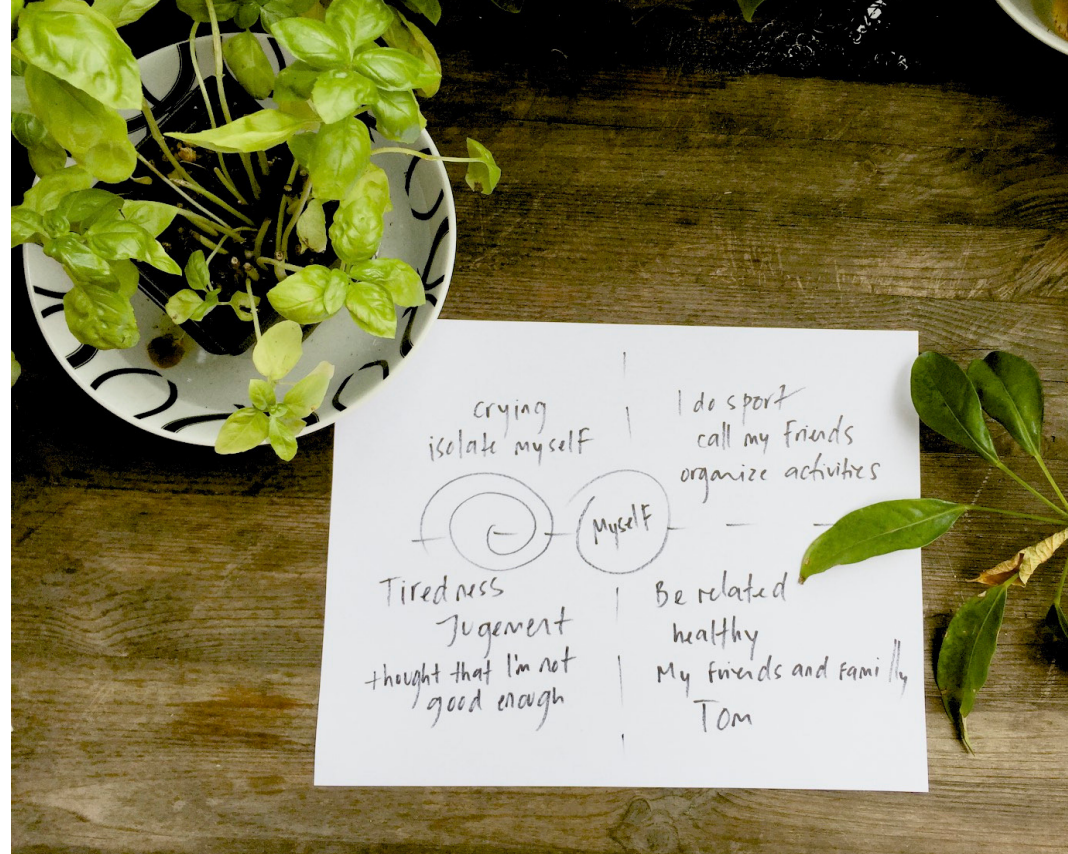 crying
isolate myself
I do sport
call my friends
organize activities
Myself
Tiredness
Jugement
thought that I'm not
good enough
Be related
healthy
My friends and familly
Tom